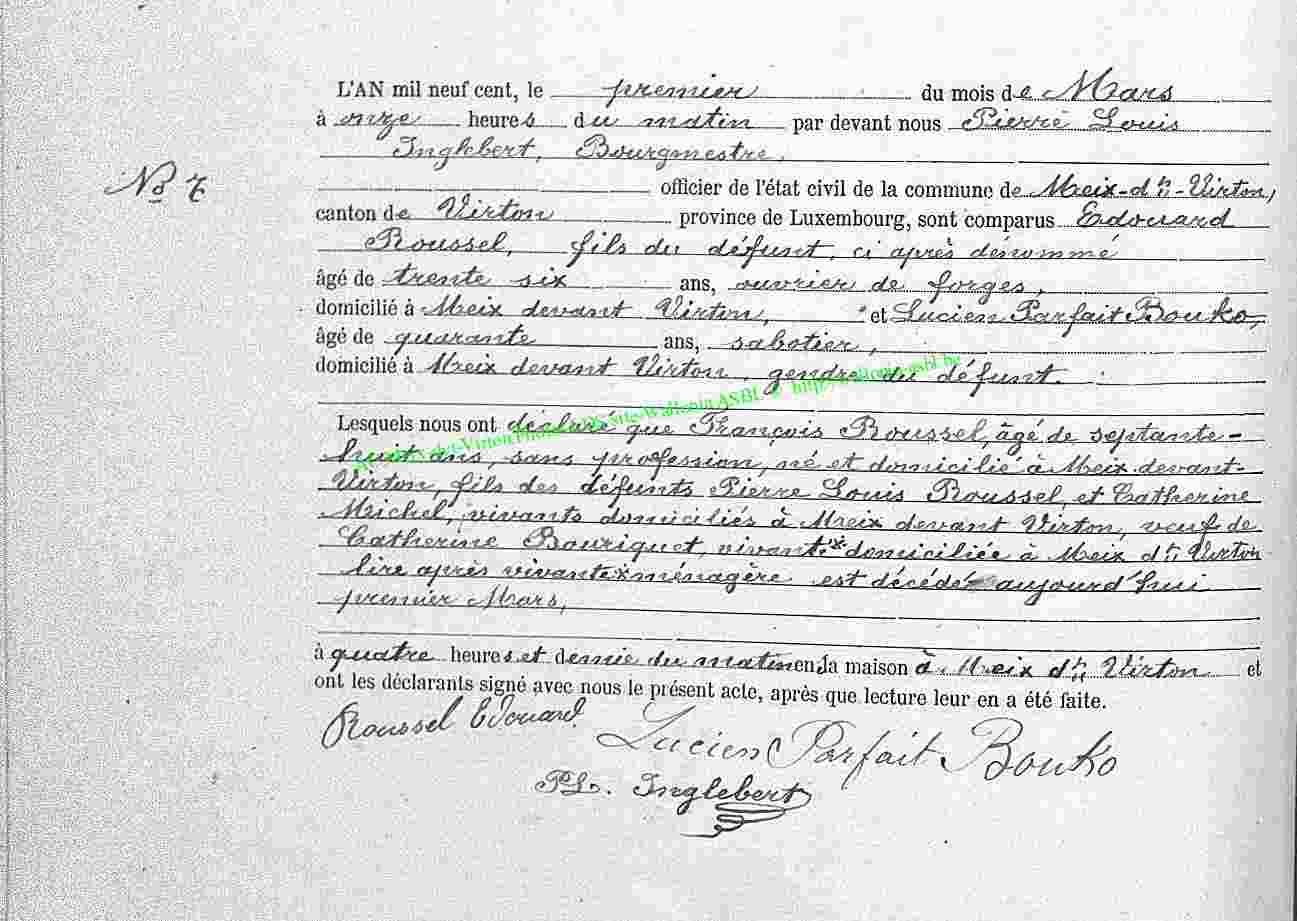 L'AN mil neuf cent, le premier du mois de Mars
à onze heures du matin par devant nous Pierre Louis
Inglebert, Bourgmestre,
officier de l'état civil de la commune de Meix-dt-Virton,
No 7
canton de Virton province de Luxembourg, sont comparus Edouard
Roussel, fils du défunt, ci après dénommé
âgé de trente six ans, ouvrier de forges,
domicilié à Meix devant Virton, et Lucien Parfait Bouko,
âgé de quarante ans, sabotier,
domicilié à Meix devant Virton, gendre du défunt.
Lesquels nous ont déclaré que François Roussel, âgé de septante-
huit ans, sans profession, né et domicilié à Meix devant-
Virton, fils des défunts Pierre Louis Roussel, et Catherine
Michel, vivants domiciliés à Meix devant Virton, veuf de
Catherine Bouriquet, vivante domiciliée à Meix dt Virton
lire après vivante ménagère est décédé aujourd'hui
premier Mars,
à quatre heures et demie du matin en la maison à Meix dt Virton et
ont les déclarants signé avec nous le présent acte, après que lecture leur en a été faite.
Roussel Edouard
Lucien Parfait Bouko
PL. Inglebert